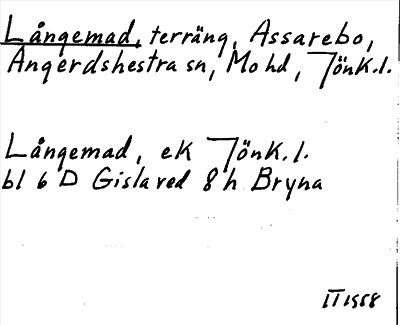 Långemad, terräng, Assarebo,
Angerdshestra sn, Mo hd, Jönk.l.
Långemad, ek Jönk.l.
bl 6 D Gislaved 8 h Bryna
IT 1958